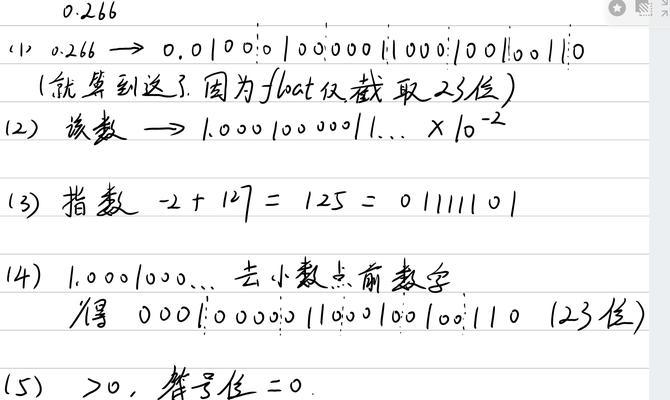 0.266
(1) 0.266 → 0.0100010000011000100100110
(就算到这了,因为float仅截取23位)
(2) 该数 → 1.00010000011... × 10⁻²
(3) 指数 -2 + 127 = 125 = 01111101
(4) 1.0001000... 去小数点前数字
得 00010000011000100100110 (23位)
(5) >0, 符号位 = 0.